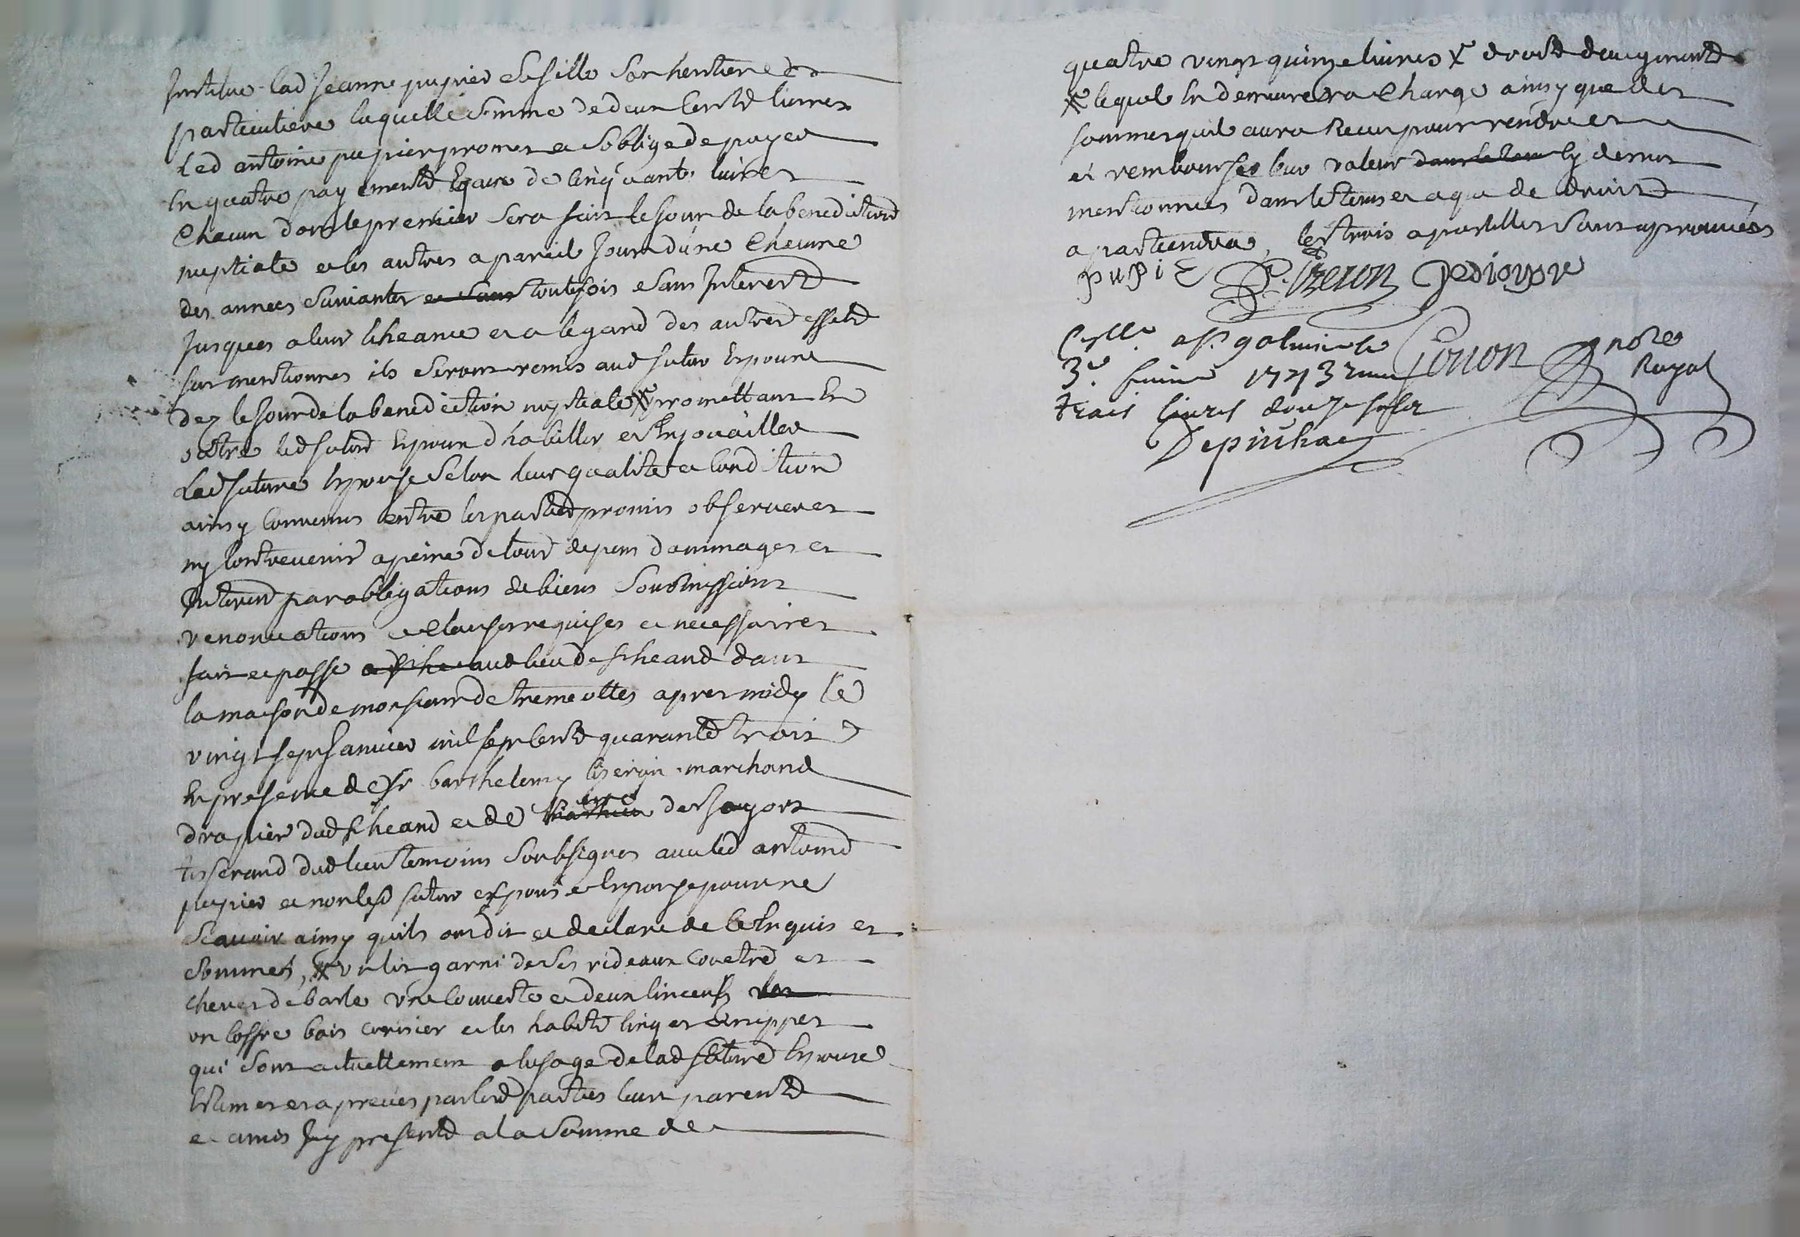 Institue lad Jeanne pupier sa fille son heritiere
particuliere laquelle somme de deux cents livres
led antoine pupier promet et soblige de payer
en quatre payements Egaux de cinquante livres
chacun dont le premier sera fait le jour de la benediction
nuptiale et les autres a pareil jour d'une chacune
des années suivantes et sans toutefois e sans Interest
Jusques a leur echeance et a legard des autres effets
sus mentionnes ils seront remis aud futur Epoux
dez le jour de la benediction nuptiale x promettant En
outre led futur Epoux d'habiller et Enjouailler
lad future Epouse selon leur qualité et condition
ainsy convenus entre les parties promis observer et
ny contrevenir a peine de tous depens dommages et
Interest par obligations de biens soubmissions
renonciations et clauses requises et necessaires
fait et passé aud lieu de scheand dans
la maison de monsieur de tremeolles apres midy le
vingt sept Janvier mil sept cents quarante trois
En presence de sr barthelemy liseron marchand
drapier dud scheand et de de sayort
tisserand dud lieu temoins soubsignes avec led antoine
pupier et non lesd futur expoux et Expouze pour ne
scavoir ainsy quils ont dit et declaré de ce Enquis et
sommes, x un lit garni de ses rideaux couetre et
chevet de barle une couverte et deux linceuls
un coffre bois cerisier et les habits linges et nippes
qui sont actuellement a lusage de lad future Epouse
Estimes et aprecies par lesd parties leurs parents
et amis Icy presents a la somme de
quatre vingt quinze livres x droit d'augment
x lequel En demeurera chargé ainsy que des
sommes quil aura Recus pour rendre et
et rembourser leur valeur dans le tems cy dessus
mentionnes dans le tems et a qui de droit
apartiendra, les trois apostilles sont aprouvées
pupiE Lizeron Desioyore
Coll. a st galmier le
3e fevrier 1743 Recu
trois livres douze sols
Depiuhac
Gonon nore
Royal